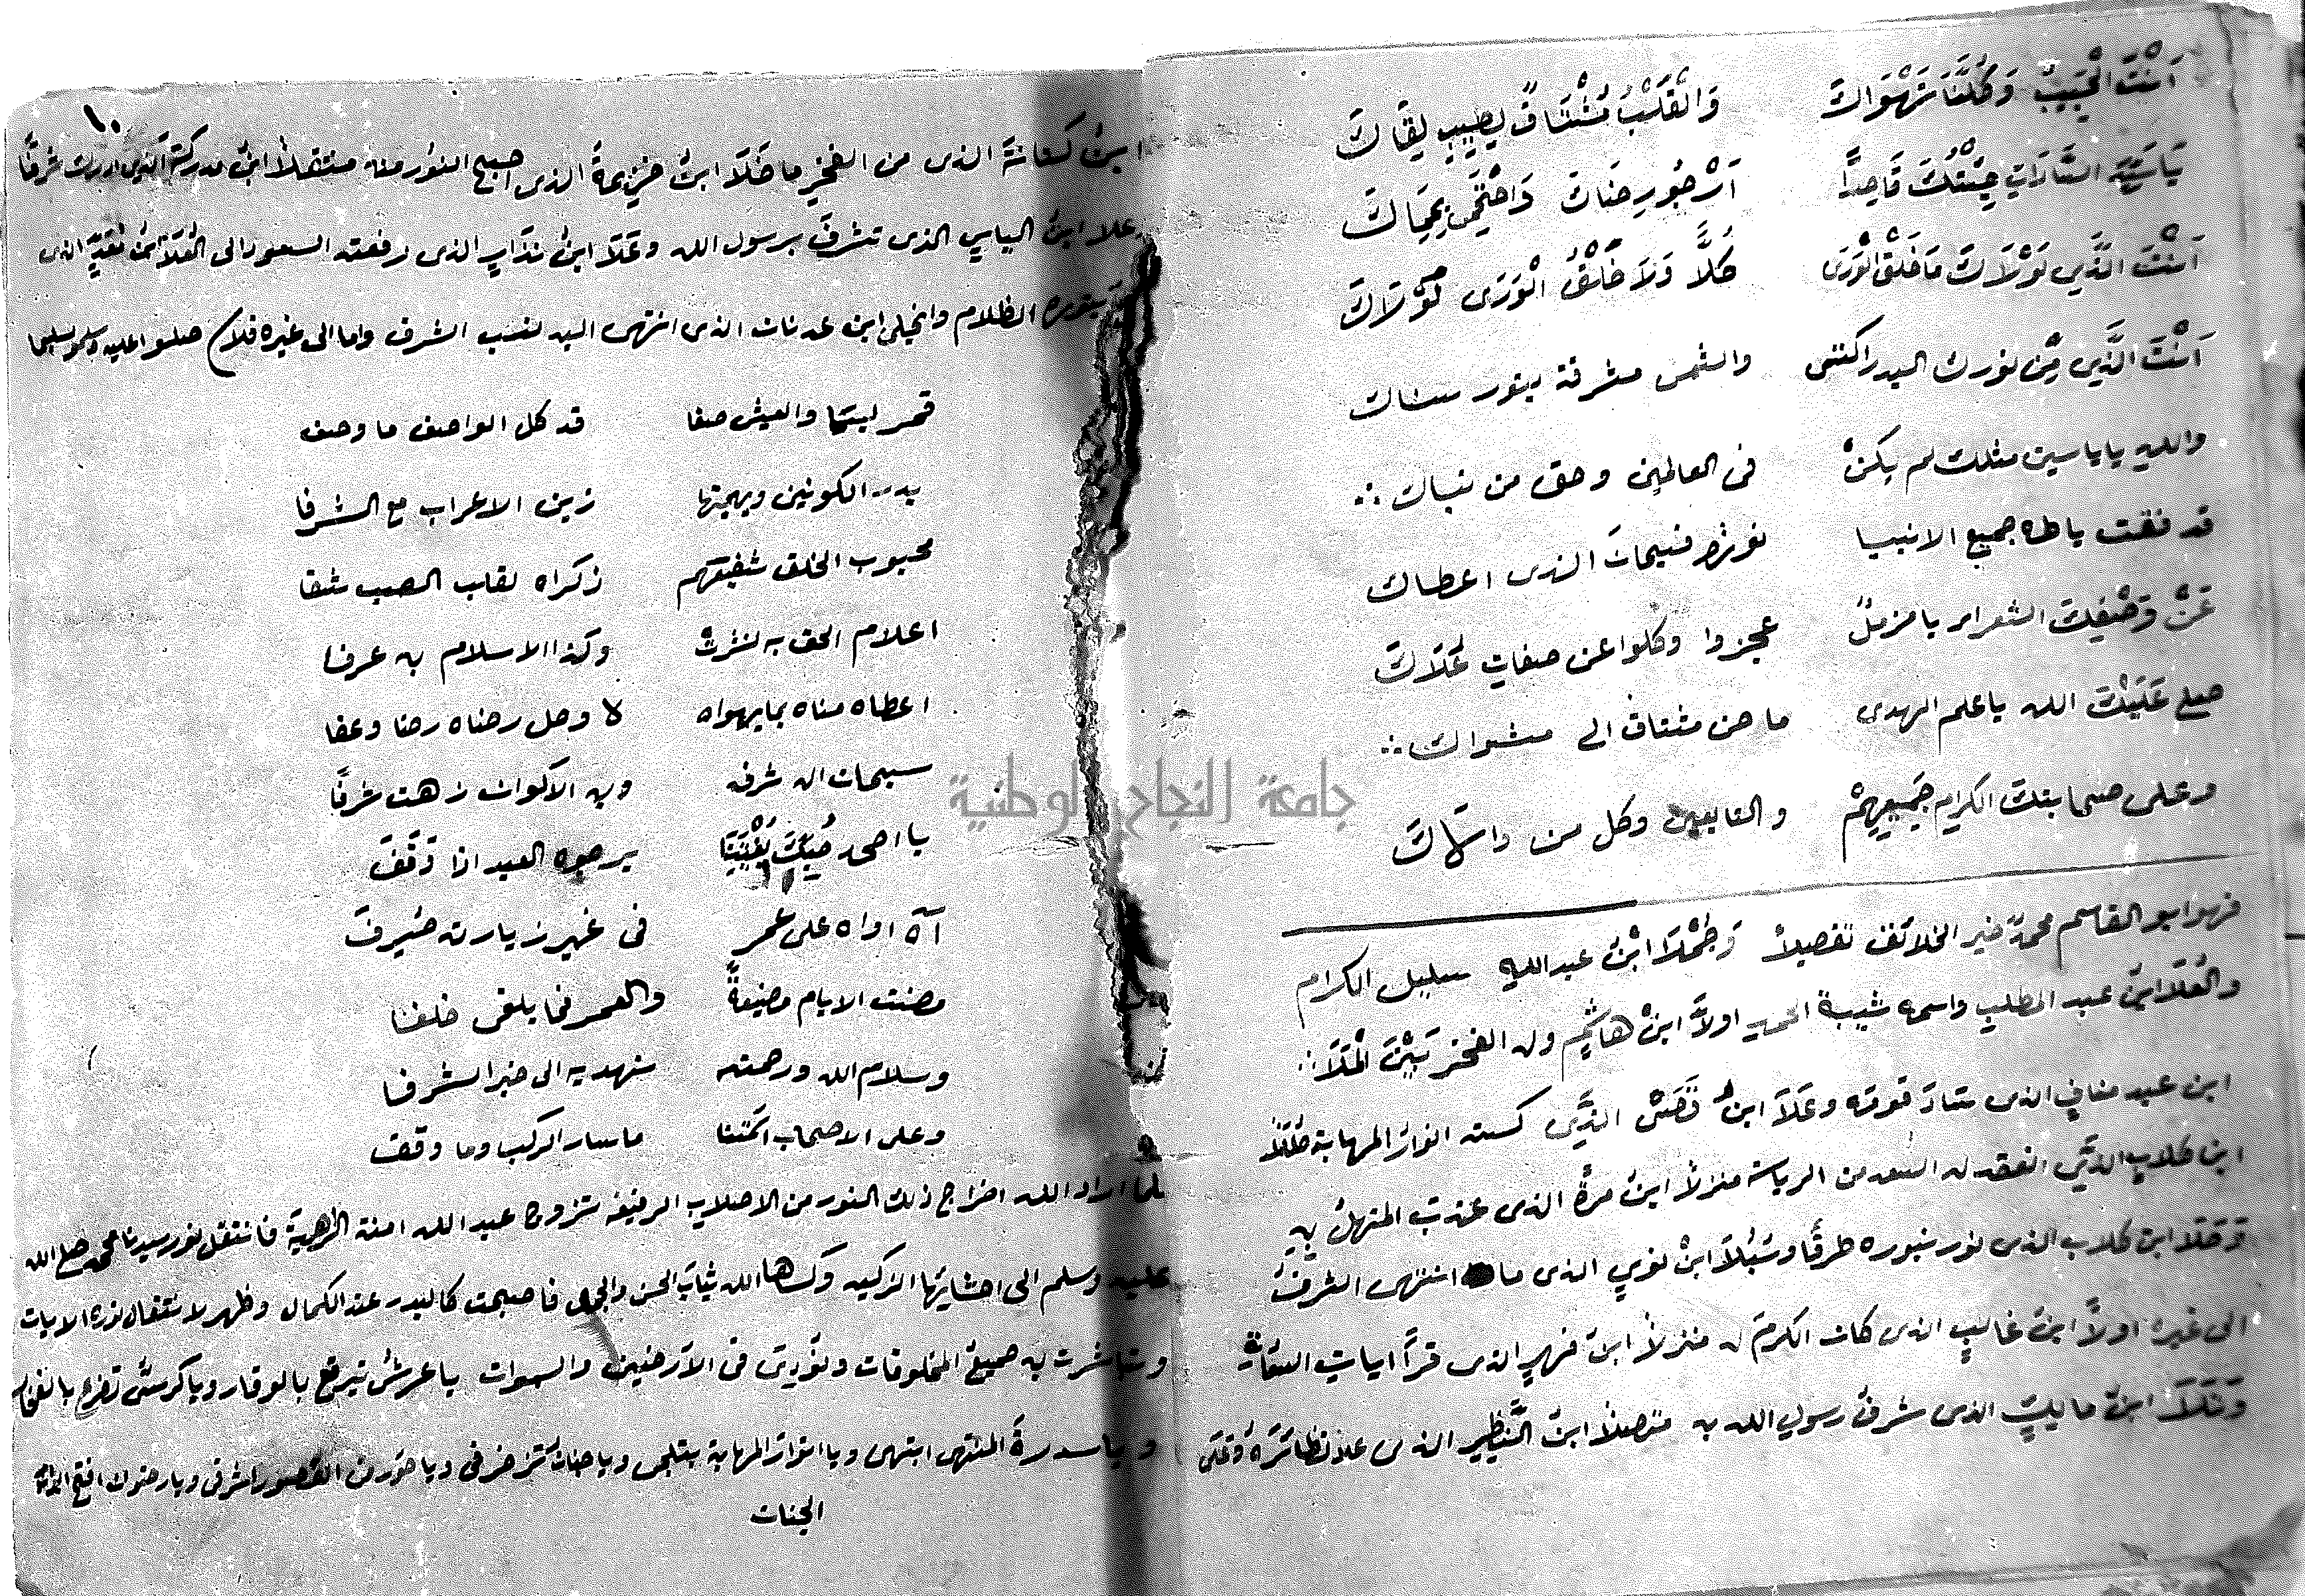 اَنْتَ الْحَبِيبُ وَكُلُّنَا نَهْوَاكَ وَالْقَلْبُ مُشْتَاقٌ لِطِيبِ لِقَاكَ
يَا سَيِّدَ السَّادَاتِ جِئْتُكَ قَاصِدًا اَرْجُو رِضَاكَ وَاحْتَمِي بِحِمَاكَ
اَنْتَ الَّذِي لَوْلَاكَ مَا خُلِقَ الْوَرَى كَلَّا وَلَا خُلِقَ الْوَرَى لَوْلَاكَ
اَنْتَ الَّذِي مِنْ نورك البدر اكتسى والشمس مشرقة بنور سناك
والله ياياسين مثلك لم يكنْ فى العالمين وحق من نباك
قد فقت ياطه جميع الانبيا نورًا فسبحان الذى اعطاك
عَنْ وَصْفِكَ الشعراء يا مزملُ عجزوا وكلوا عن صفاتِ عُلَاكَ
صلى عَلَيْكَ الله ياعلم الهدى ما حن مشتاق الى مثواك
وعلى صحابتك الكرامِ جَمِيعِهِمْ والتابعين وكل من والاكَ
فهو ابو القاسم محمدٌ خير الخلائق تفصيلاً وَجُمْلَا ابْنُ عبد اللهِ سليل الكرام
والعُلَا ابنُ عبد المطلبِ واسمه شيبة الحمد اولاً ابنْ هاشمٍ وله الفخر بَيْنَ الْمَلَا
ابن عبد منافٍ الذى ساد قومه وعَلَا ابنُ قُصَىْ الَّذِي كسته انوار المهابة حُلَلاً
ابن كلابٍ الذِي انعقد له السعد من الرياسة منزلاً ابنُ مرةً الذى عذبَ المنهلُ بهِ
وَحَلَا ابن كلاب الذى نور بنوره طرقًا وسُبُلاً ابنْ لوىٍ الذى ما انتهى الشرفُ
الى غيره اولاً ابنُ غالبٍ الذى كان الكرمَ له منزلاً ابن فهرٍ الذى قرأ ايات التقاةِ
وَتَلَا ابنُ مالِكٍ الذى شرفُ رسولِ الله به متصلاً ابن النَّضِيرِ الذى علا نظائرَهُ وَعَلَى
١٠
ابنُ كَنَانةَ الذى من الفخرِ ما خَلَا ابنُ خزيمةَ الذى اصبح النور منه منتقلاً ابنُ مدركة الذى ادرك شرفًا
وعلا ابنُ الياسِ الذى تشرفَ برسول الله وعَلَا ابنُ نذارٍ الذى رفعته السعود الى العُلَا ابنُ مَعَدٍّ الذى
بنوره الظلام وانجلى ابن عدنان الذى انتهى اليه نسب الشرف واما الى غيره فلا صلوا عليه وسلموا تسليما
قمر ليتما والعيش صفا قد كل الواصف ما وصف
بدر الكونين وبهجتها زين الاعراب مع الشرفا
محبوب الخلق شفيعهم ذكراه لقلب الصب شفا
اعلام الحق به نشرتْ وكذا الاسلام به عرفا
اعطاه مناه بما يهواه لا وصل رضاه رضا وعفا
سبحان اله شرفه وبه الاكوان زهت شرفًا
يا احمد حُبُّكَ يُغْنِيَنَا يرجوه العبد اذا وَقَفَ
آه اواه على عمر فى غير زيارته صُرِفَ
مضت الايام مضيعةً والعمر فما يلقى خلفا
وسلام الله ورحمته نهديه الى خير الشرفا
وعلى الاصحاب ائمتنا ما سار الركب وما وقف
فلما اراد الله اخراج ذلك النور من الاصلاب الرفيعه تزوج عبد الله امنة الزهرية فانتقل نور سيدنا محمد صلى الله
عليه وسلم الى احشايها الزكيه وكساها الله ثيابَ الحسن والجمال فاصبحت كالبدر عند الكمال وظهر لانتقال نوره الايات
وتباشرت به جميعُ المخلوقات ونُودِيَ فى الاَرضين والسموات ياعرشُ تبرقع بالوقار وياكرسىُ تدرع بالفخار
وياسدرةَ المنتهى ابتهى ويا انوار المهابة ابتلجى وياجنان تزخرفى وياحور من القصور اشرفى ويارضوان افتح ابوابَ
الجنات
جامعة النجاح الوطنية